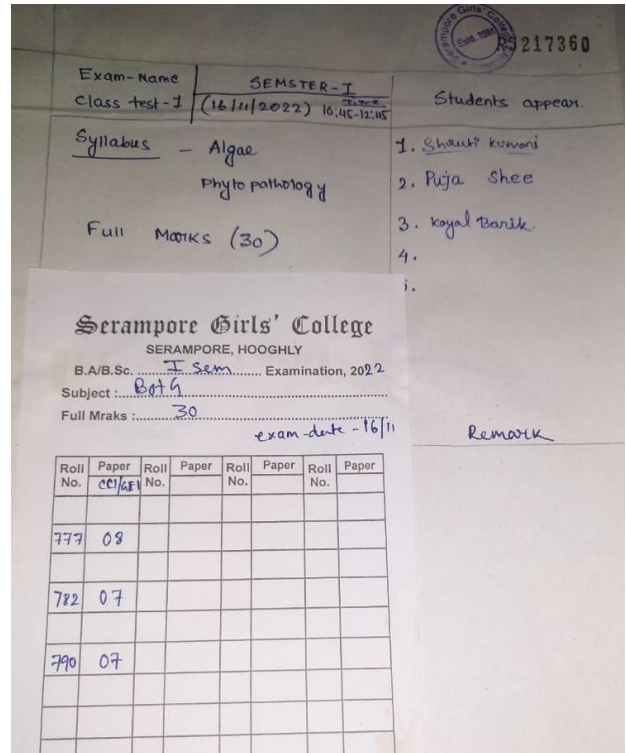 Serampore Girls' College
Estd. 1981
R5217360
Exam-Name
Class test-I
SEMSTER-I
(16/11/2022) Time 10:45-12:15
Students appear.
Syllabus - Algae
Phytopathology
Full Marks (30)
1. Shruti kumari
2. Puja Shee
3. Koyal Barik.
4.
5.
Serampore Girls' College
SERAMPORE, HOOGHLY
B.A/B.Sc. I Sem Examination, 2022
Subject : BotG
Full Mraks : 30
exam-date - 16/11
Remark
Roll No. Paper Roll No. Paper Roll No. Paper Roll No. Paper
CC1/GE1
777 08
782 07
790 07